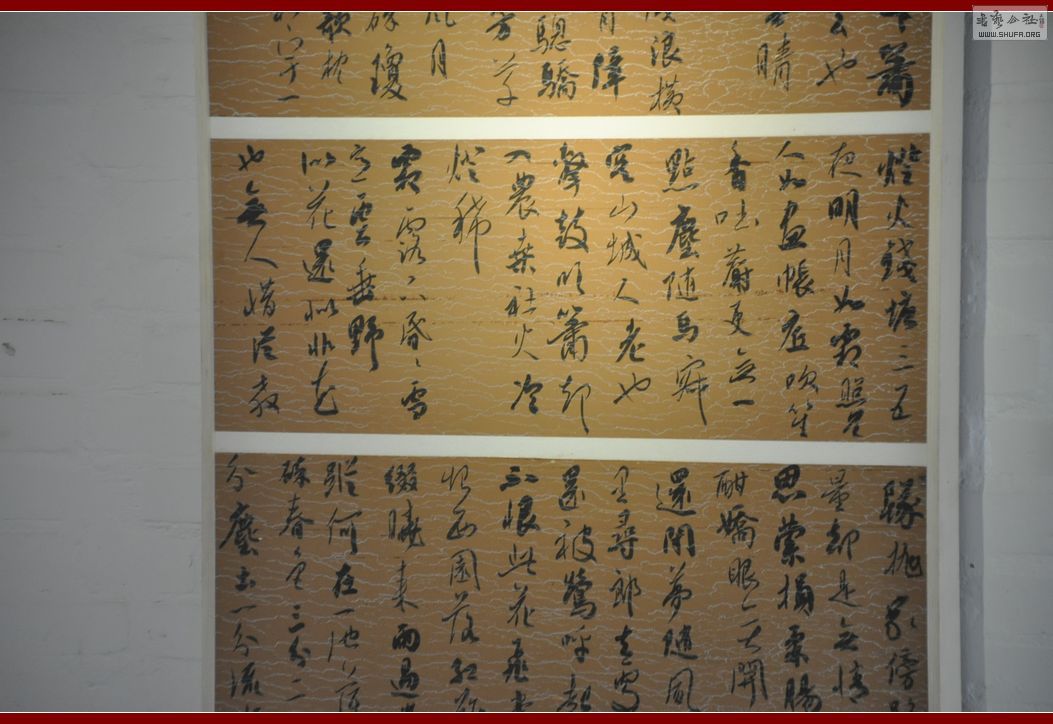 書藝公社
WWW.SHUFA.ORG
簫
去也
晴
浪橫
障
驄驕
芳草
風月
碎瓊
欹枕
宇一
燈火錢塘三五
夜明月如霜照見
人如畫帳底吹笙
香吐麝更無一
點塵隨馬寂
寞山城人老也
擊鼓吹簫却
入農桑社火冷
燈稀
霜露下昏昏雪
意雲垂野
似花還似非花
也無人惜從教
墜拋家傍路
量却是無情
思縈損柔腸
酣嬌眼欲開
還閉夢隨風
里尋郎去處
還被鶯呼起
不恨此花飛盡
恨西園落紅難
綴曉來雨過
蹤何在一池萍
碎春色三分二
分塵土一分流